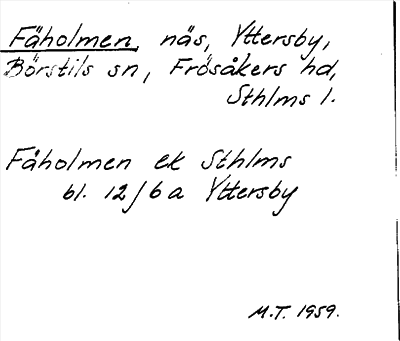 Fäholmen, näs, Yttersby,
Börstils sn, Frösåkers hd,
Sthlms l.
Fäholmen ek Sthlms
bl. 12/6a Yttersby
M.T. 1959.